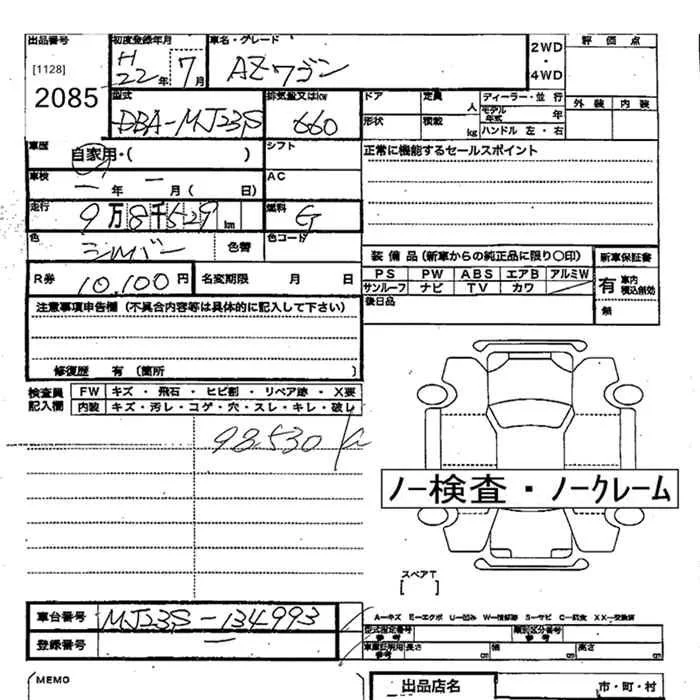 出品番号 初度登録年月 車名・グレード 2WD・4WD 評価点
[1128] H22年 7月 AZワゴン
2085
型式 排気量又はkw ドア 定員 人 ディーラー・並行 外装 内装
DBA-MJ23S 660 モデル年式 年
形状 積載 kg ハンドル 左・右
車歴 自家用・( ) シフト 正常に機能するセールスポイント
車検 年 月( 日) AC
走行 9万8千529km 燃料 G
色 シルバー 色替 色コード
装備品(新車からの純正品に限り〇印) 新車保証書
R券 10,100円 名変期限 月 日
PS PW ABS エアB アルミW 有 車内積込無効
サンルーフ ナビ TV カワ
後日品 無
注意事項申告欄(不具合内容等は具体的に記入して下さい)
修復歴 有(箇所 )
検査員記入欄 FW キズ・飛石・ヒビ割・リペア跡・X要
内装 キズ・汚レ・コゲ・穴・スレ・キレ・破レ
98530
ノー検査・ノークレーム
スペアT
[ ]
車台番号 MJ23S-134993
A-キズ E-エクボ U-凹み W-補修跡 S-サビ C-腐食 XX-交換済
型式指定番号 参考 類別区分番号 参考
登録番号 車庫証明用参考 長さ cm 幅 cm 高さ cm
MEMO 出品店名 市・町・村